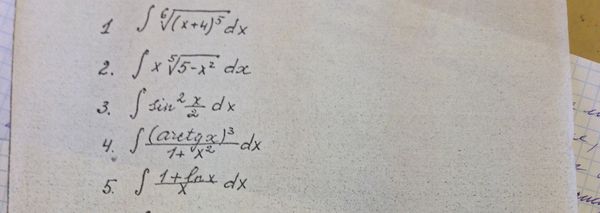 1 ∫ ⁶√(x+4)⁵ dx
2. ∫ x ⁵√5-x² dx
3. ∫ sin² x/2 dx
4. ∫ (arctgx)³/1+x² dx
5. ∫ 1+lnx/x dx